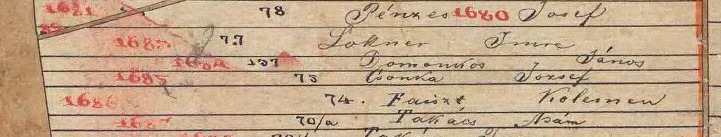 1681 78 Pénzes 1680 Josef
1683 77 Lokner Imre
1684 137 Domonkos János
1685 75 Csonka József
1686 74. Faiszt Kolemen
70/a Takács Ádám